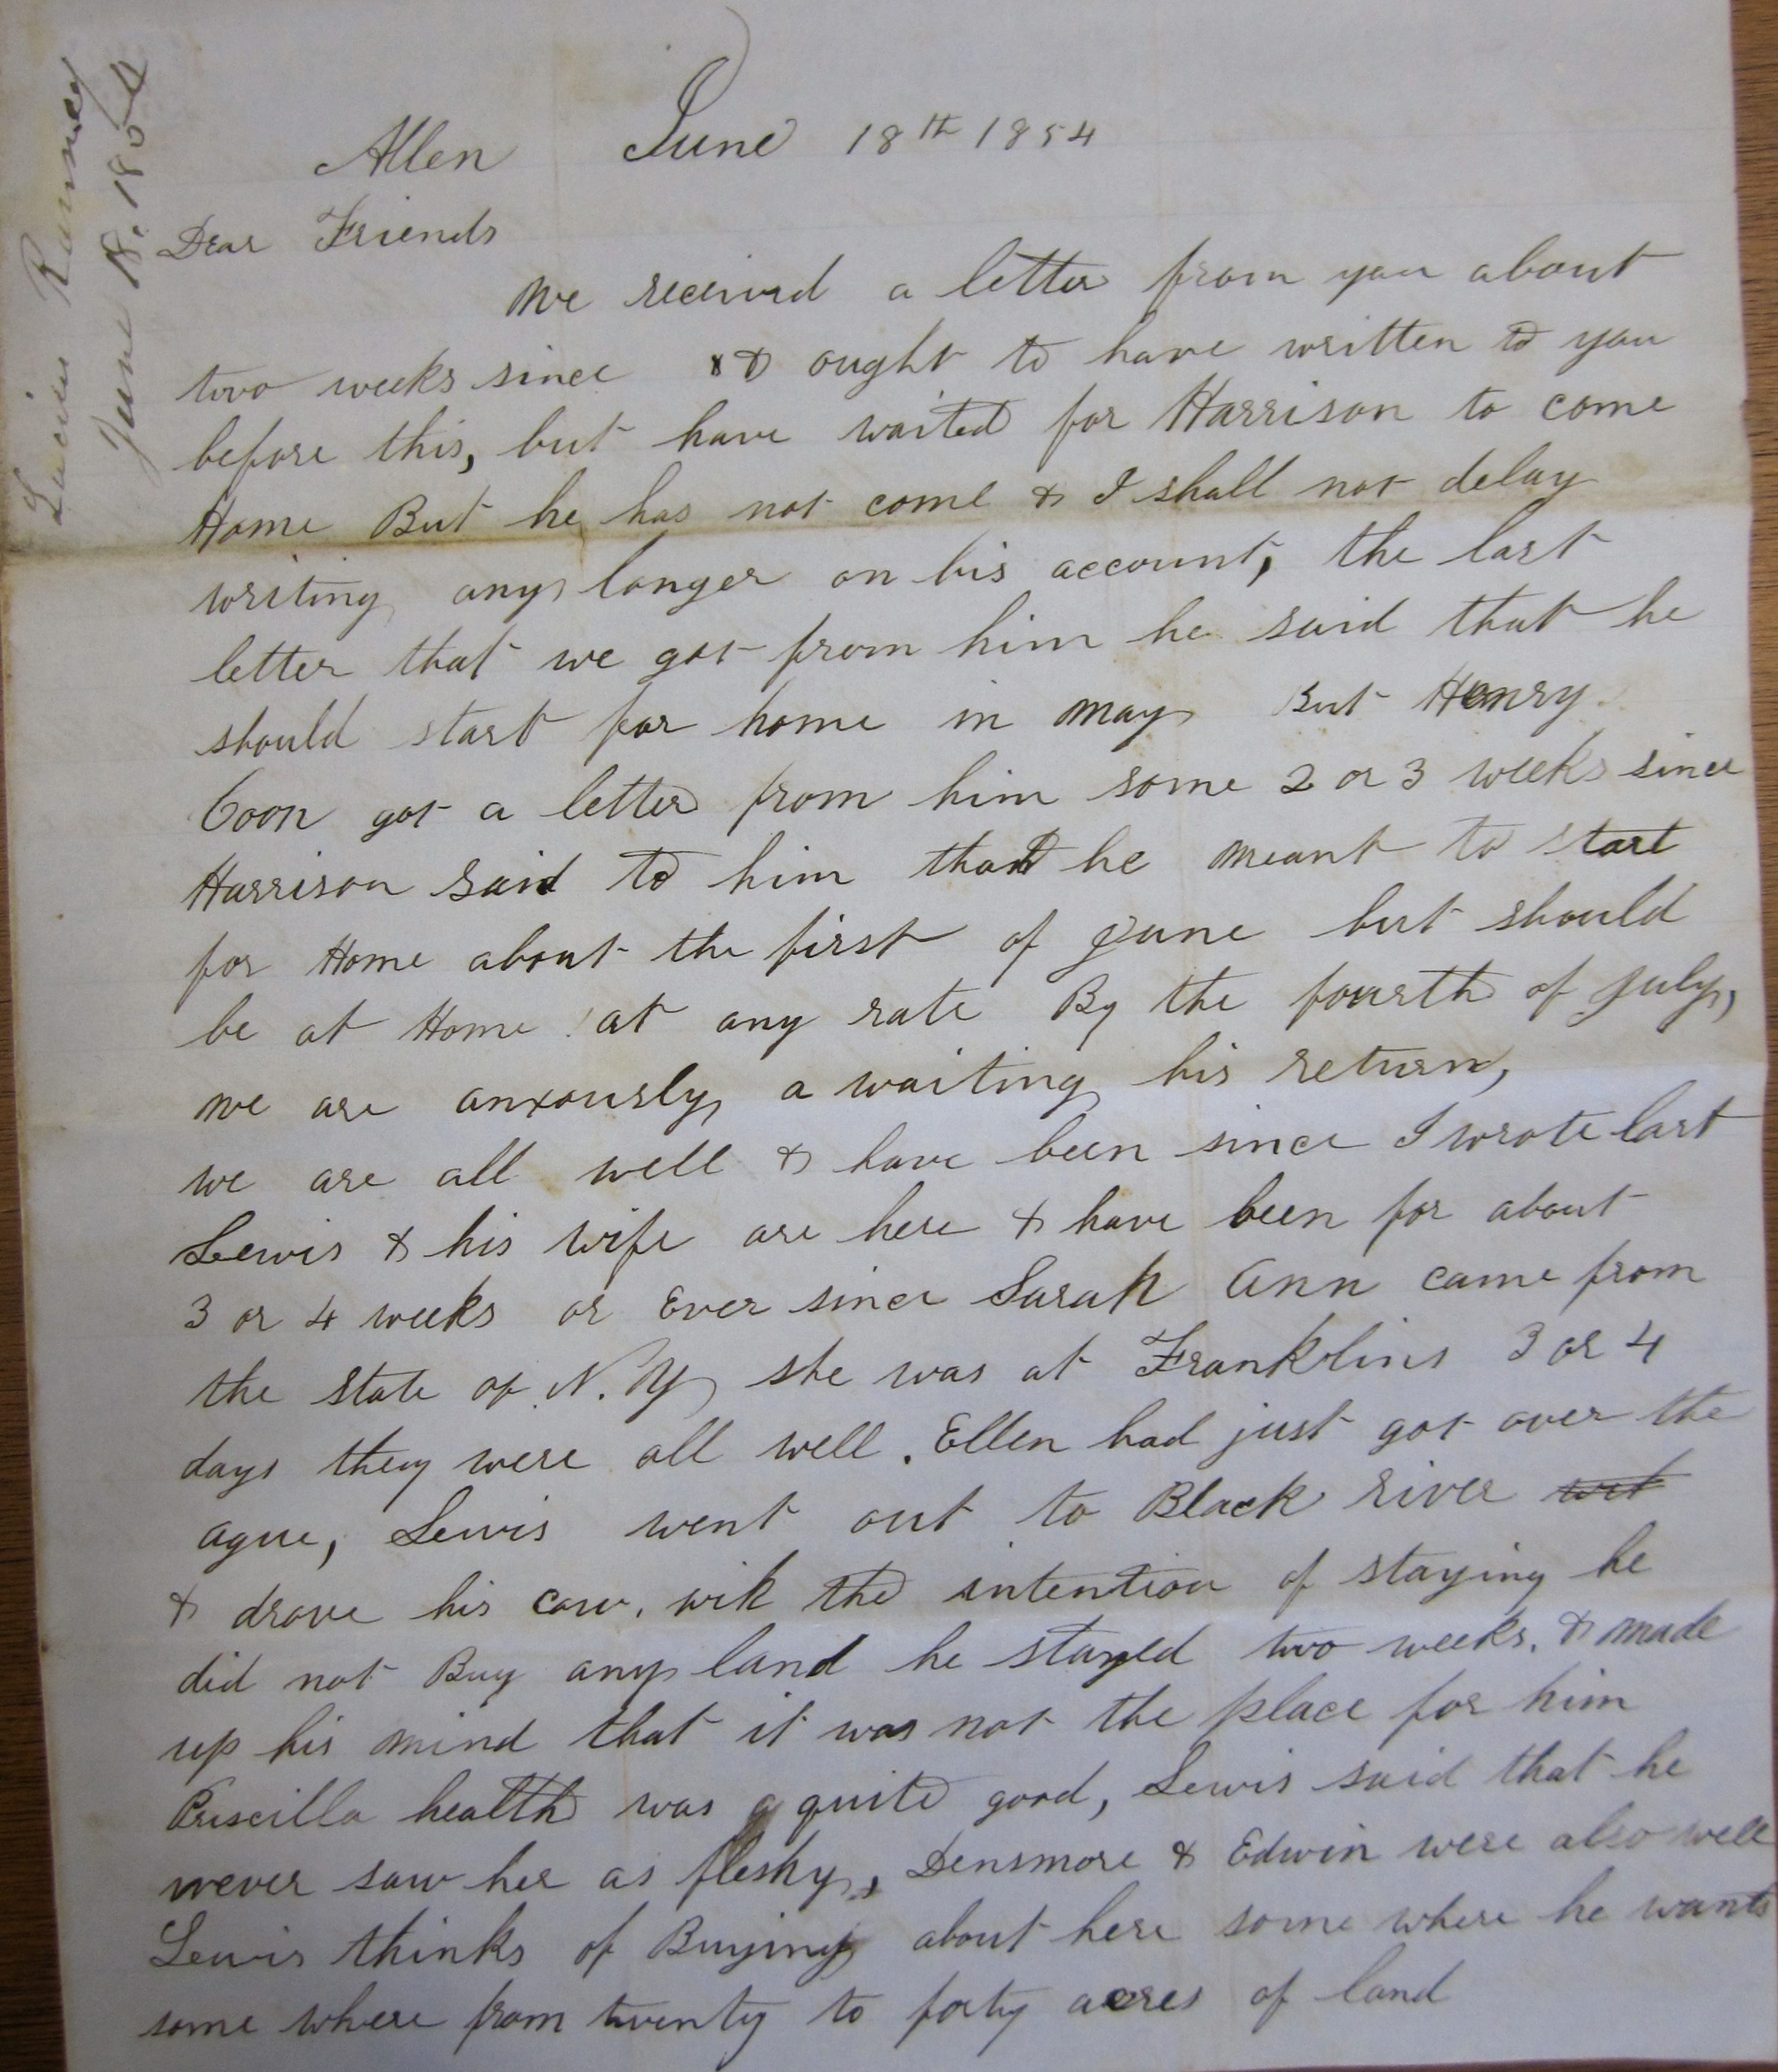 Lucius Ranney
June 18. 1854
Allen June 18th 1854
Dear Friends
We received a letter from you about
two weeks since & ought to have written to you
before this, but have waited for Harrison to come
Home But he has not come & I shall not delay
writing any longer on his account, the last
letter that we got from him he said that he
should start for home in may But Henry
Coon got a letter from him some 2 or 3 weeks since
Harrison said to him that he meant to start
for Home about the first of June but should
be at Home at any rate By the fourth of July,
we are anxously a waiting his return,
we are all well & have been since I wrote last
Lewis & his wife are here & have been for about
3 or 4 weeks or Ever since Sarah Ann came from
the State of N.Y she was at Franklins 3 or 4
days they were all well. Ellen had just got over the
ague, Lewis went out to Black river wit
& drove his cow. wik the intention of staying he
did not Buy any land he stayed two weeks. & made
up his mind that it was not the place for him
Priscilla health was quite good, Lewis said that he
never saw her as fleshy, Densmore & Edwin were also well
Lewis thinks of Buying about here some where he wants
some where from twenty to forty acres of land